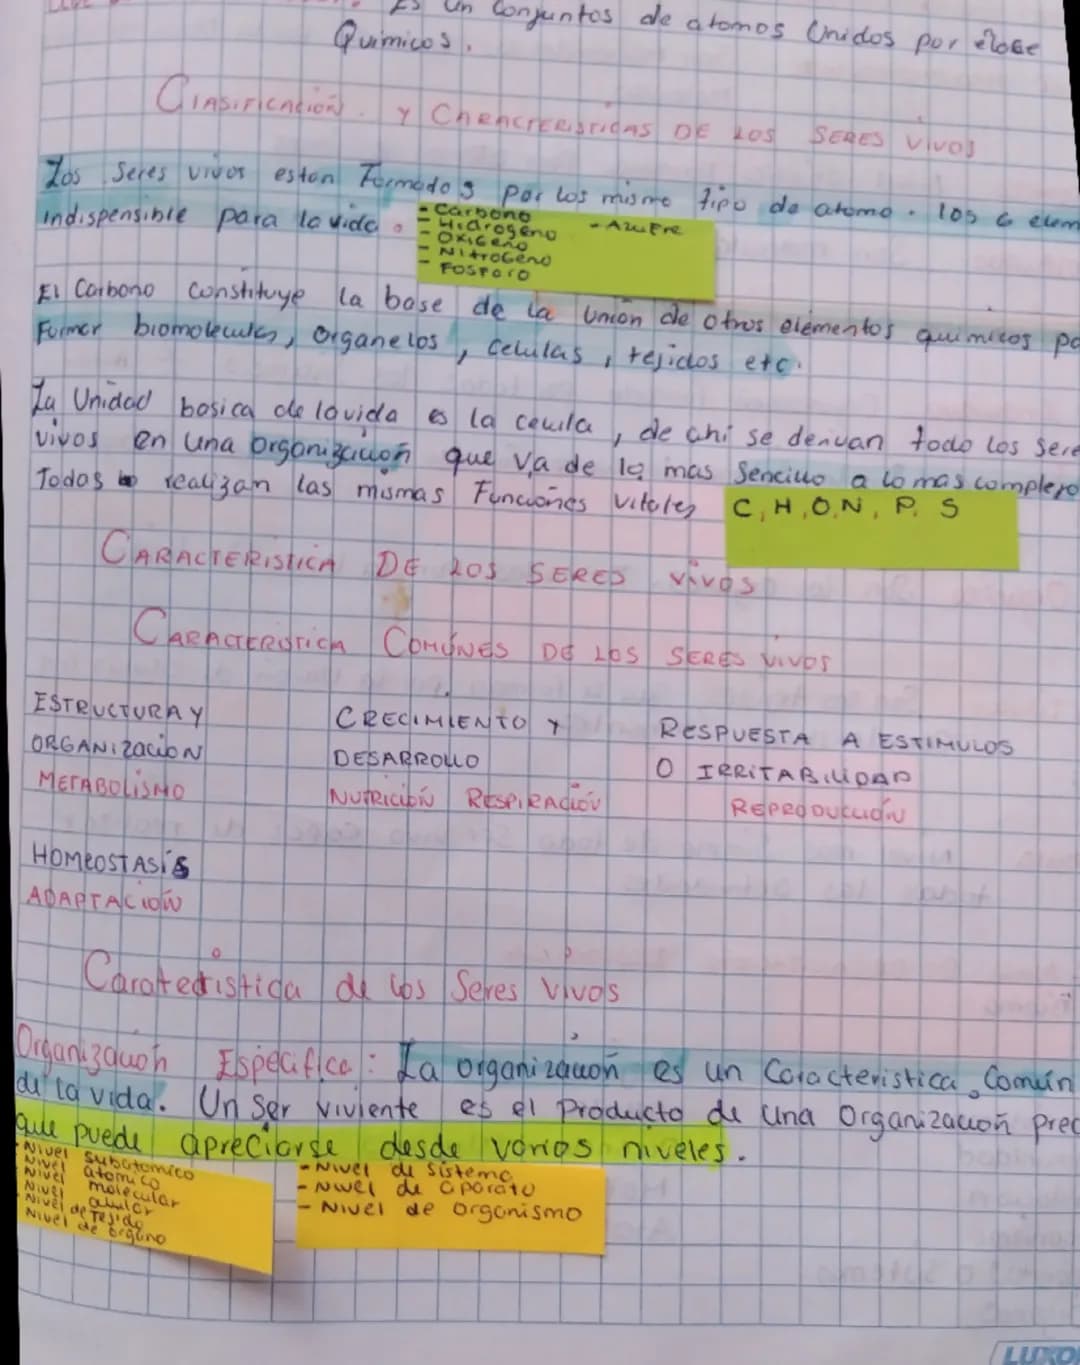 Es un conjuntos de atomos Unidos por
Quimicos.
Clasificación y Charcteristicas DE LOS SERES VIVOS
Los Seres vivos estan Formados por los mismo tipo de atomo. los 6 elem
indispensible para la vida.
- Carbono
- Hidrogeno
- Oxigeno
- Nitrogeno
- FOSFORO
- Azufre
El Carbono constituye la base de la Unión de otros elementos quimicos pa
Formar biomoleculas, organelos, celulas, tejidos etc.
La Unidad basica de la vida es la celula, de ahi se derivan todo los sere
vivos en una organización que va de lo mas Sencillo a lo mas complejo
Todos realizan las mismas Funciones vitales
C, H, O, N, P. S
CARACTERISTICA DE LOS SERES VIVOS
CARACTERISTICA COMÚNES DE LOS SERES VIVOS
ESTRUCTURA Y
ORGANIZACION
METABOLISMO
CRECIMIENTO Y
DESARROLLO
NUTRICIÓN RESPIRACIÓN
RESPUESTA A ESTIMULOS
O IRRITABILIDAD
REPRODUCCIÓN
HOMEOSTASIS
ADAPTACIÓN
Carateristica de los Seres Vivos
Organización Especifica: La organización es un Caracteristica Común
de la vida. Un Ser viviente es el producto de una Organización prec
que puede apreciarse desde varios niveles.
- Nivel subatomico
Nivel atomico
Nivel molecular
Nivel celular
- Nivel de Tejido
Nivel de organo
- Nivel de Sistema
- Nivel de aparato
- Nivel de organismo
LUXO